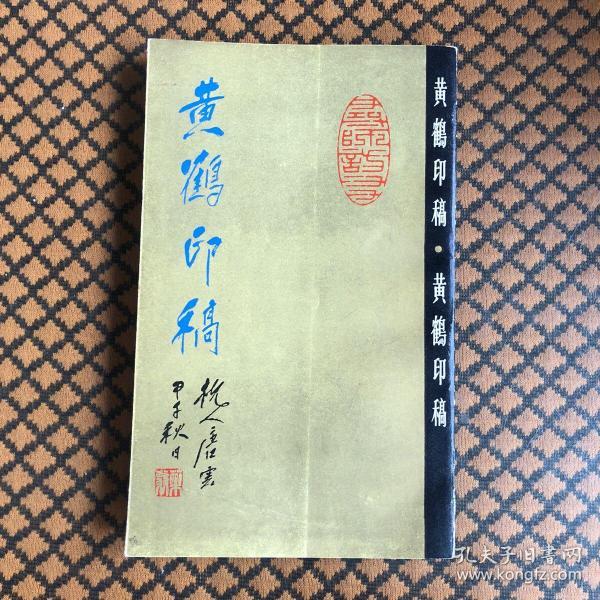 黄鶴印稿
杭人唐雲
甲子秋日
黄鶴印稿·黄鶴印稿
孔夫子旧书网
www.kongfz.com